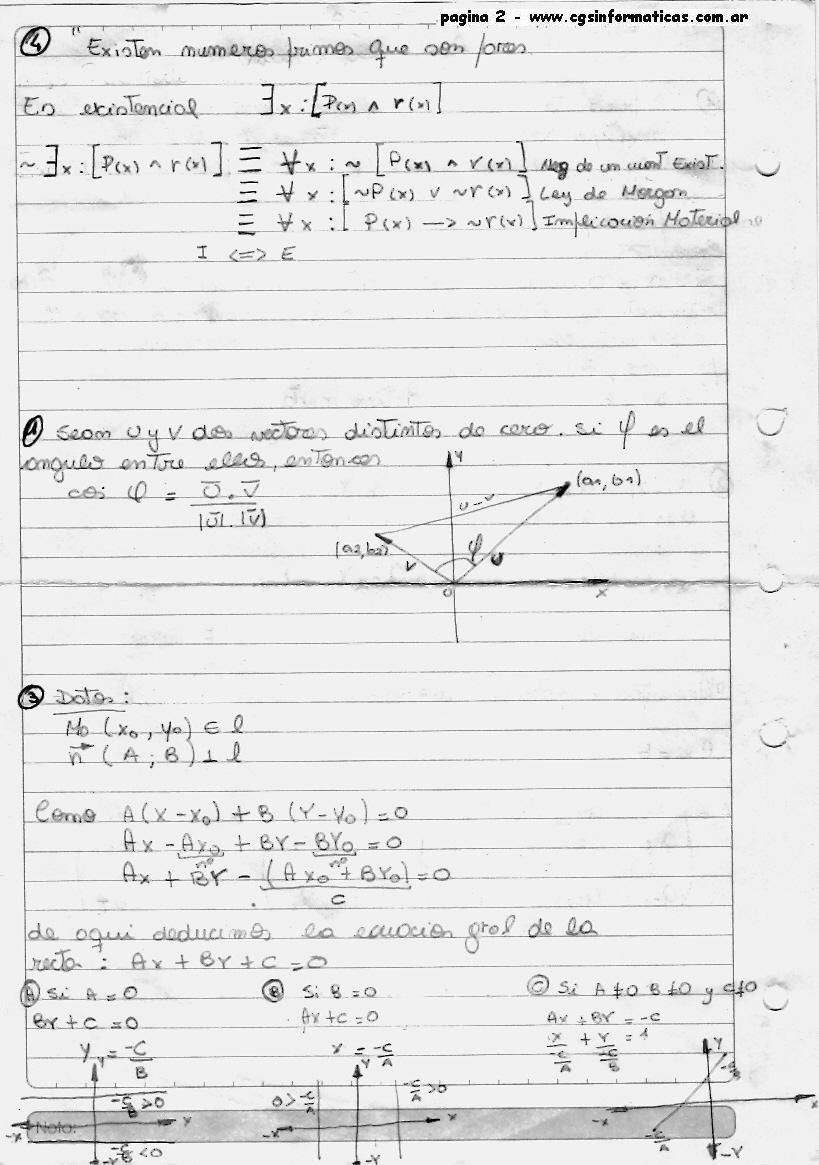 pagina 2 - www.cgsinformaticas.com.ar
④ "Existen numeros primos que son pares
Es existencial ∃x : [P(x) ∧ r(x)]
~∃x : [P(x) ∧ r(x)] ≡ ∀x : ~[P(x) ∧ r(x)] Neg de un cuant Exist.
≡ ∀x : [~P(x) ∨ ~r(x)] Ley de Morgan
≡ ∀x : [P(x) —> ~r(x)] Implicación Material
I <=> E
① Sean U y V dos vectores distintos de cero. Si φ es el
angulo entre ellos, entonces
cos φ = Ū . V̄ / |Ū| . |V̄|
Y
(a1, b1)
U-V
(a2, b2)
φ
V
U
O
X
③ Datos :
Mo (x₀, y₀) ∈ l
n⃗ (A ; B) ⊥ l
Como A(X - X₀) + B (Y - Y₀) = 0
Ax - Ax₀ + BY - BY₀ = 0
nº nº
Ax + BY - (Ax₀ + BY₀) = 0
C
de aqui deducimos la ecuacion gral de la
recta : Ax + BY + C = 0
Ⓐ Si A = 0 Ⓑ Si B = 0 Ⓒ Si A ≠ 0 B ≠ 0 y C ≠ 0
BY + C = 0 Ax + C = 0 Ax + BY = -C
Y = -C/B x = -C/A x/(-C/A) + Y/(-C/B) = 1
Y Y Y
-C/B > 0 0 > -C/A -C/A > 0 -C/B
-X X -X X -X X
Nota:
-C/B < 0 -C/A
-Y -Y -Y